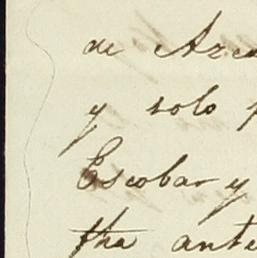 de Arc
y solo p
Escobar y
tha ante